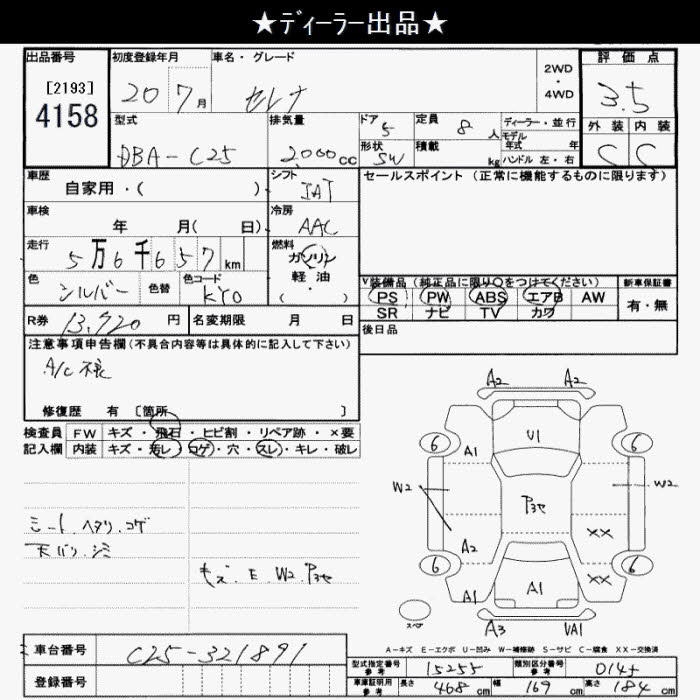 ★ディーラー出品★
出品番号
[2193]
4158
初度登録年月
20 7月
車名・グレード
セレナ
2WD
・
4WD
評価点
3.5
外装 内装
C C
型式
DBA-C25
排気量
2,000cc
ドア 5
形状 SW
定員 8人
積載 kg
ディーラー・並行
モデル
年式 年
ハンドル 左・右
車歴
自家用・( )
シフト
IAT
セールスポイント(正常に機能するものに限ります)
車検
年 月( 日)
冷房
AAC
走行
5万6千657km
燃料
ガソリン
軽油
( ・ )
色
シルバー
色替
色コード
KY0
V装備品(純正品に限り○をつけてください)
PS PW ABS エアB AW
SR ナビ TV カワ
新車保証書
有・無
R券 13,920円
名変期限 月 日
後日品
注意事項申告欄(不具合内容等は具体的に記入して下さい)
A/C
修復歴 有 〔箇所 〕
検査員
記入欄
FW キズ・飛石・ヒビ割・リペア跡・×要
内装 キズ・汚レ・コゲ・穴・スレ・キレ・破レ
シート ヘタリ.コゲ
天バリ.シミ
キズ.E.W2.Pヨセ
A2 A2
6 6
A1 U1
W2 W2
Pヨセ
A2 XX
6 XX 6
A1 A1
スペア
A3 VA1
A-キズ E-エクボ U-凹み W-補修跡 S-サビ C-腐食 XX-交換済
車台番号 C25-321891
登録番号
型式指定番号
参考
15255
類別区分番号
参考
車庫証明用
参考
長さ 468cm 幅 169cm 高さ 184cm